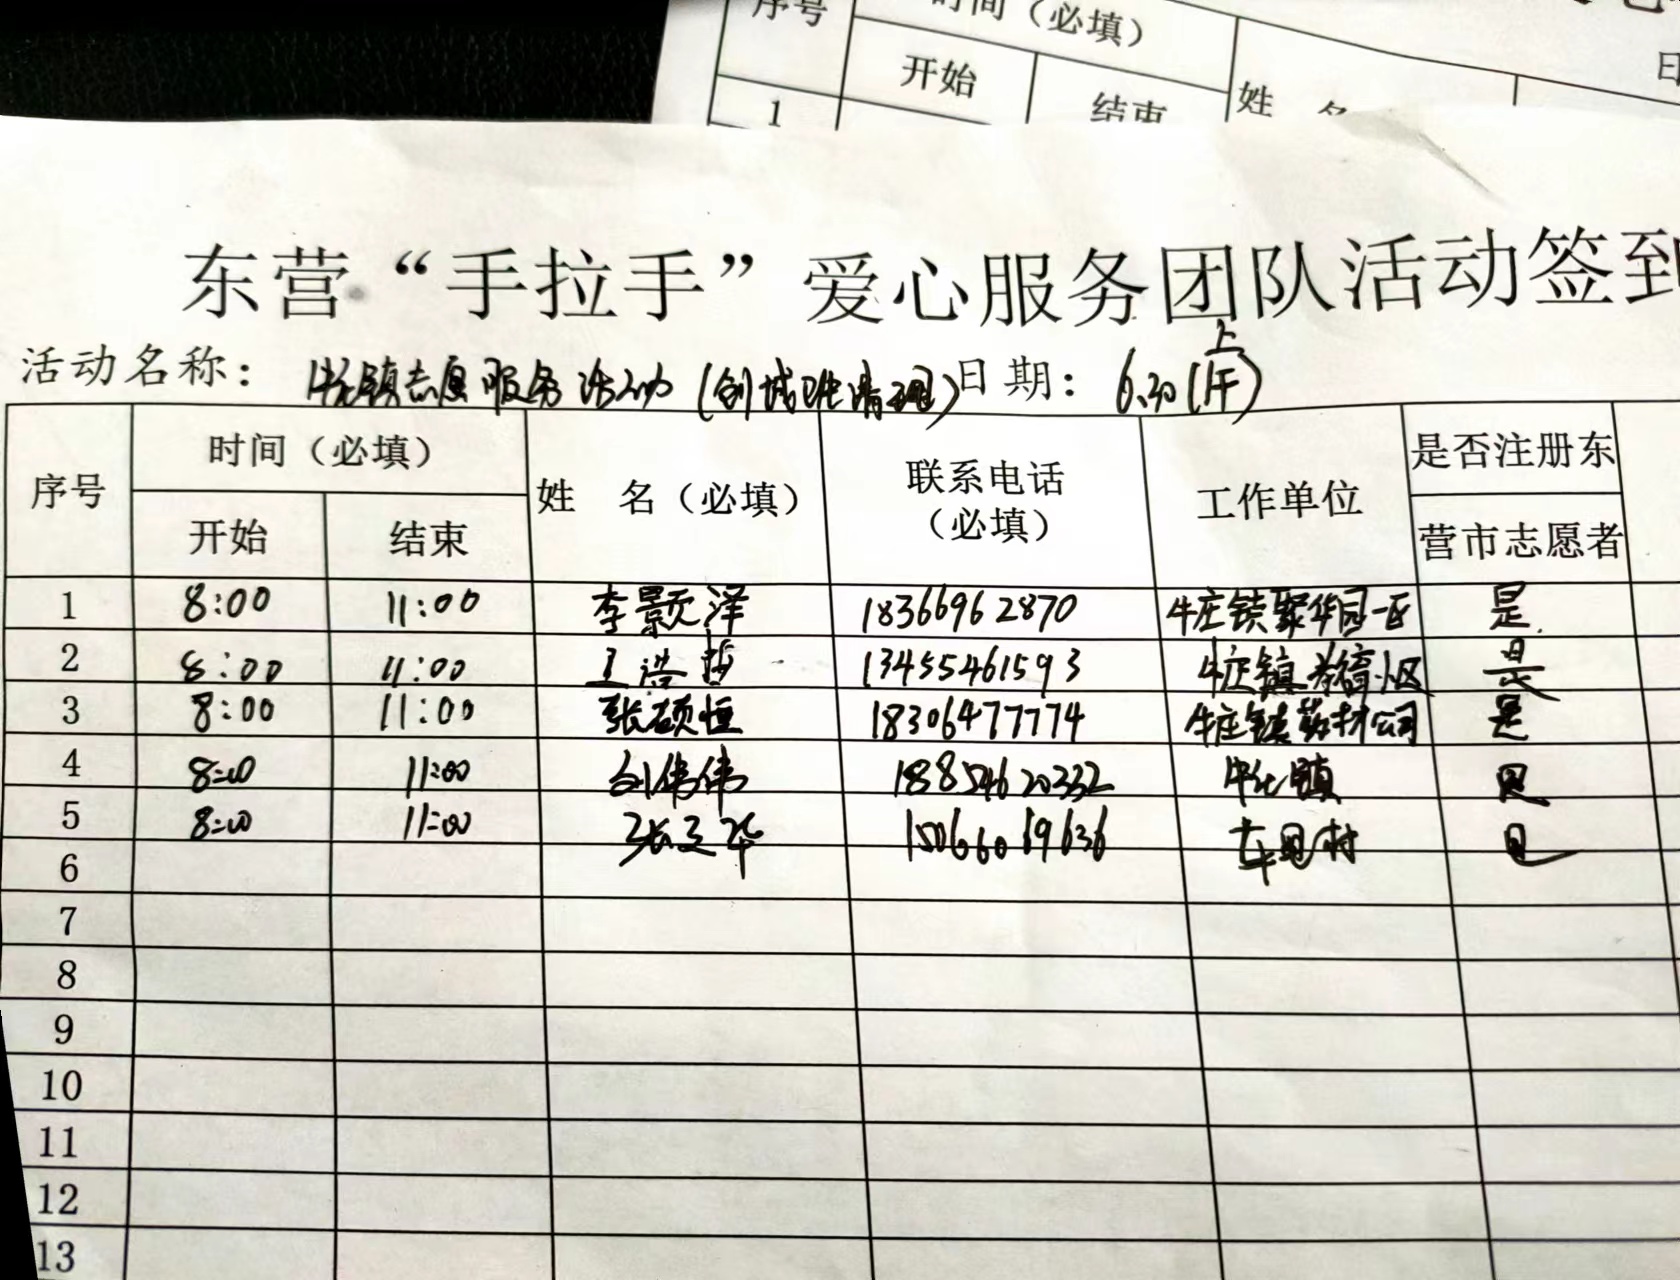 序号 时间（必填） 日
开始 结束 姓 名
1
东营“手拉手”爱心服务团队活动签到
活动名称： 牛庄镇志愿服务活动（创城 清理） 日期： 6.30（上午）
序号 时间（必填） 姓 名（必填） 联系电话（必填） 工作单位 是否注册东
开始 结束 营市志愿者
1 8:00 11:00 李颢泽 18366962870 牛庄镇聚华园一区 是
2 8:00 11:00 王浩哲 13455461593 牛庄镇 小区 是
3 8:00 11:00 张硕恒 18306477774 牛庄镇 公司 是
4 8:00 11:00 刘伟伟 18854620332 牛庄镇 是
5 8:00 11:00 张文华 15066069636 村 是
6
7
8
9
10
11
12
13